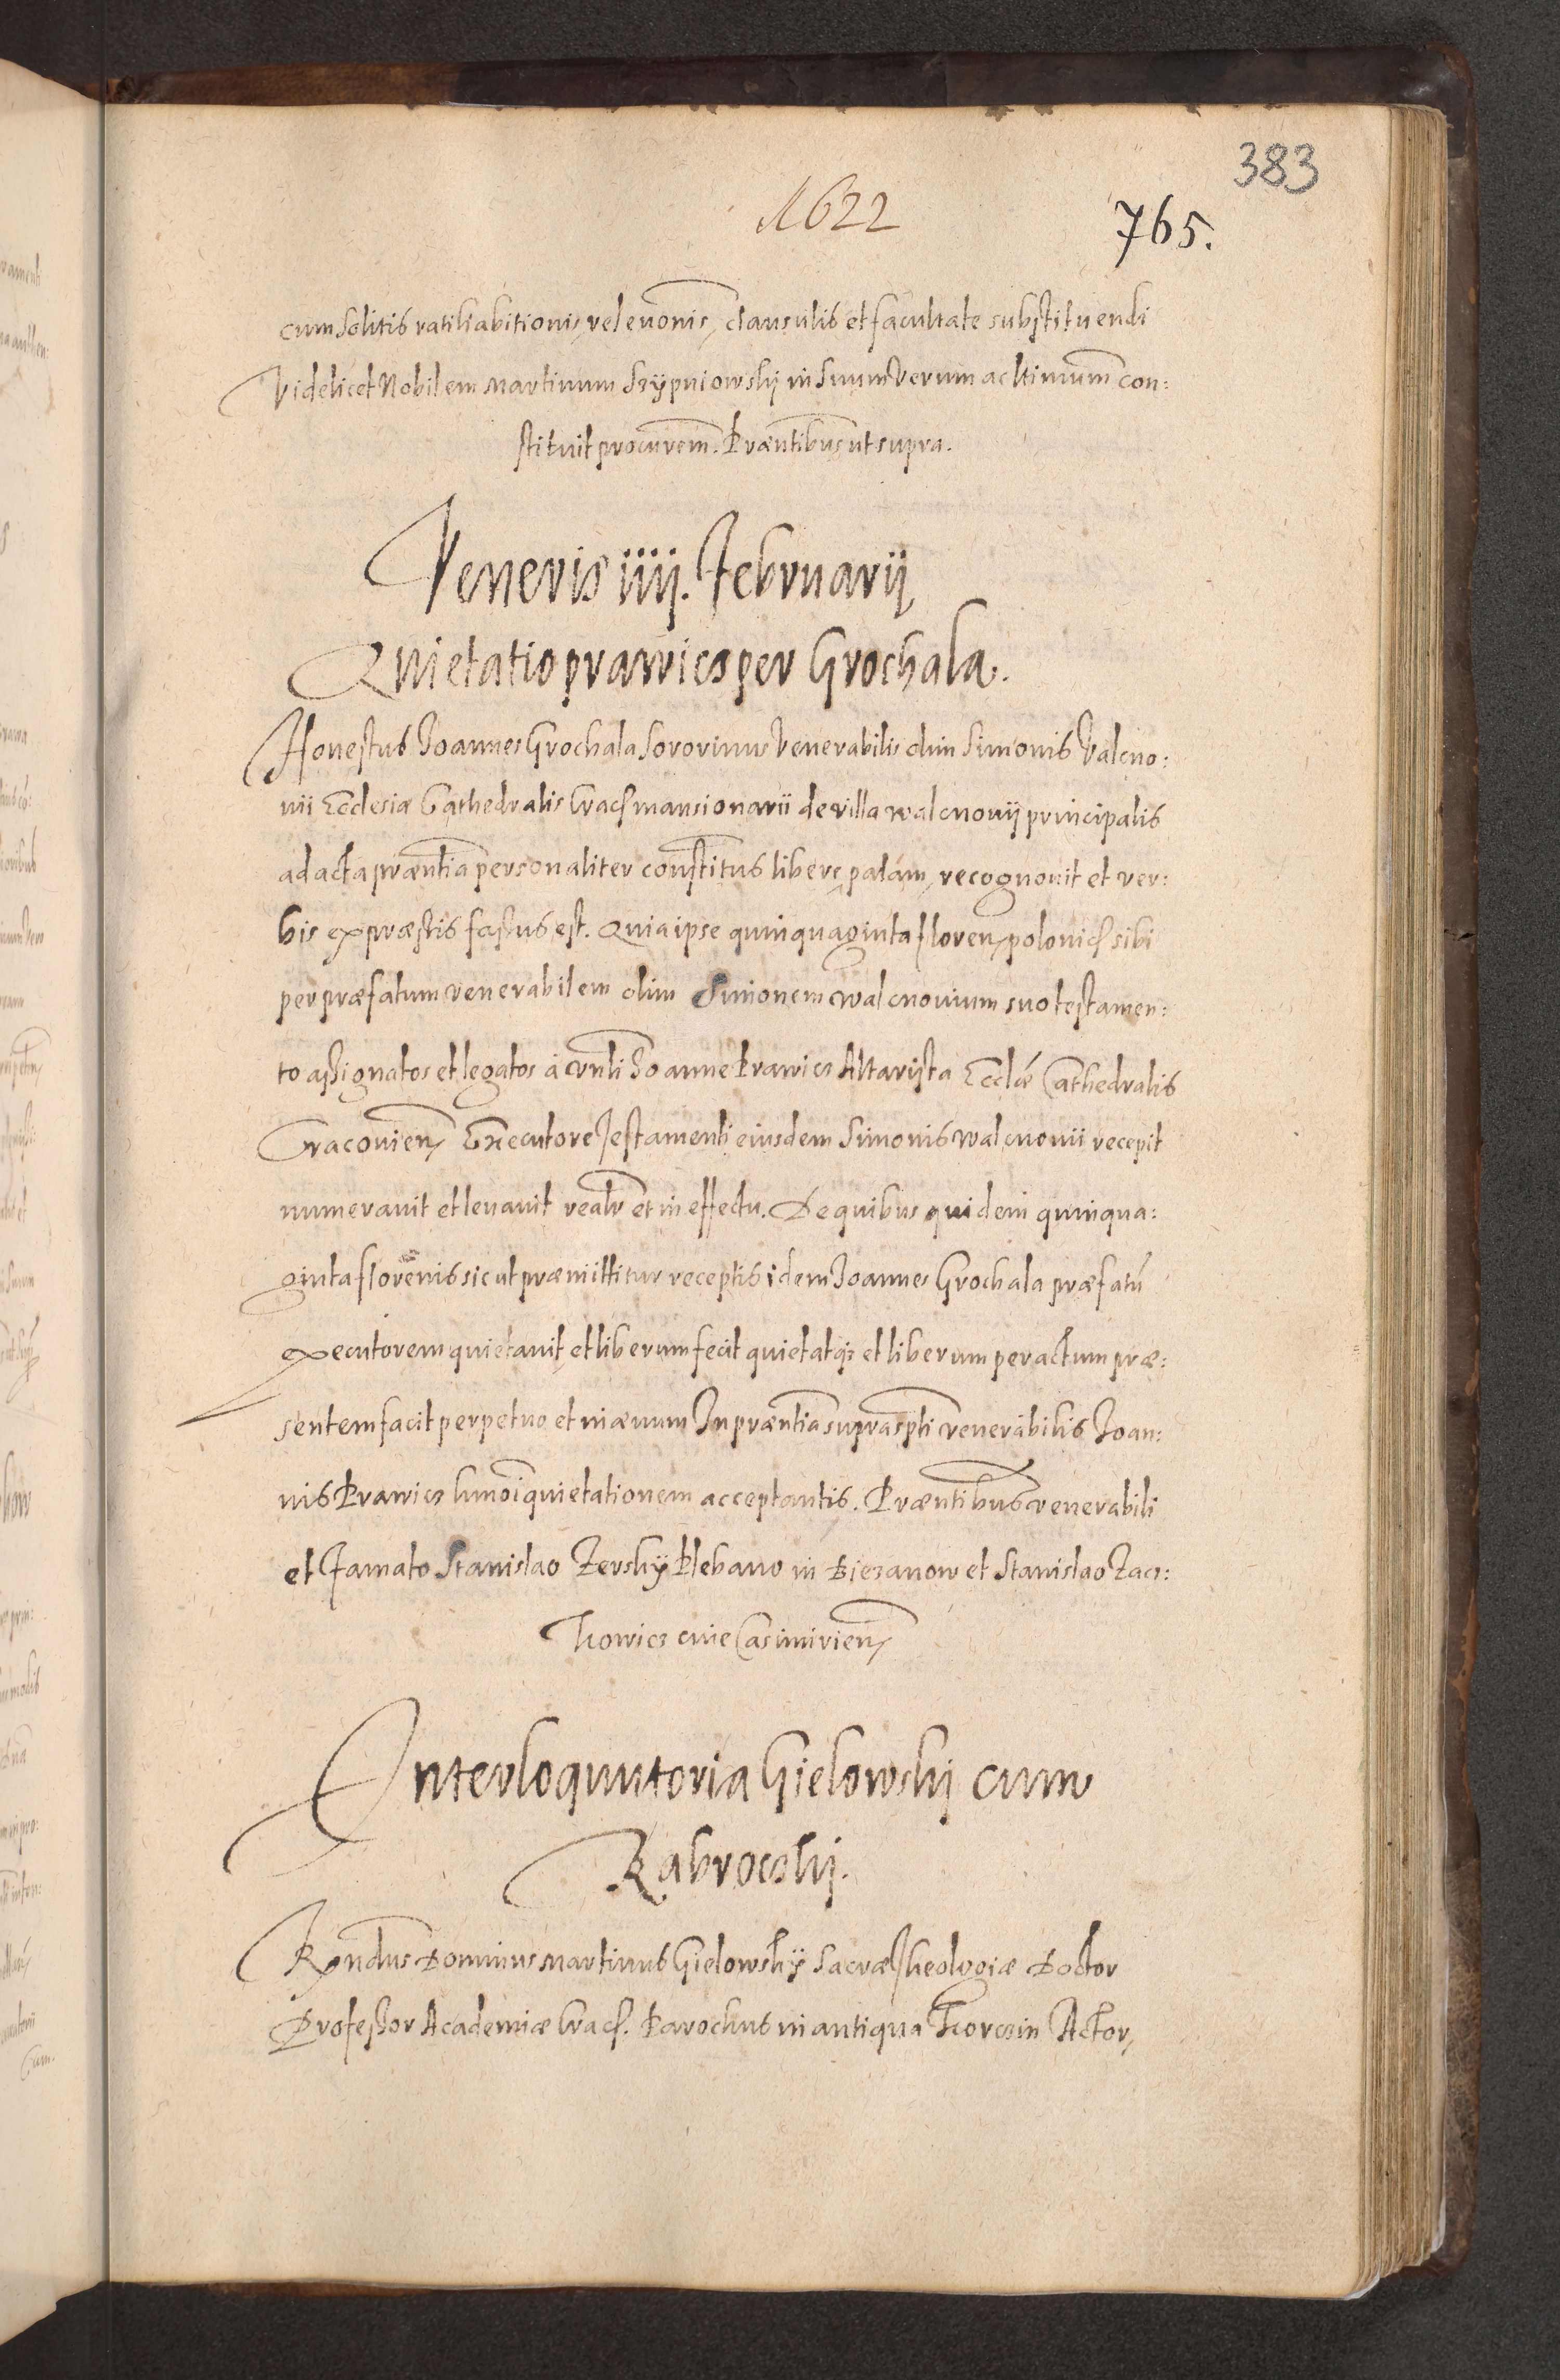 383
1622
765.
cum solitis ratihabitionis, relevonis, clausulis et facultate substituendi
Videlicet Nobilem Martinum Szÿpniowskj in suum verum ac ltimum con:
stituit procurem. Præntibus ut supra.
Veneris iiij. Februarij,
Quietatio prawicz per Grochala.
Honestus Joannes Grochala sororinus Venerabilis olim Simonis Valcno:
vii Ecclesiæ Cathedralis Crac mansionarii de villa walcnovij principalis
ad acta præntia personaliter constitus libere, palam, recognovit et ver:
bis expræssis fassus est. Quia ipse quinquaginta floren, polonic sibi
per præfatum venerabilem olim Simonem walcnovium suo testamen:
to assignatos et legatos à vnli Joanne Prawicz Altarista Ecclæ Cathedralis
Cracovien, Executore Testamenti eiusdem Simonis walcnovii recepit
numeravit et levavit realr et in effectu. De quibus quidem quinqua:
ginta florenis sicut præmittitur receptis idem Joannes Grochala præfatū
executorem quietavit, et liberum fecit quietatq3 et liberum per actum præ:
sentem facit perpetuo et in ævum In præntia suprascpti venerabilis Joan:
nis Prawicz hmoi quietationem acceptantis. Præntibus venerabili
et Famato Stanislao Zerskÿ Plebano in Biezanow et Stanislao Zacz:
kowicz cive Casimirien,
Interloquutoria Gielowskj cum
Zabroczkj.
Rndus Dominus Martinus Gielowskÿ Sacræ Theologiæ Doctor
Professor Academiæ Crac. Parochus in antiqua Korczin Actor,